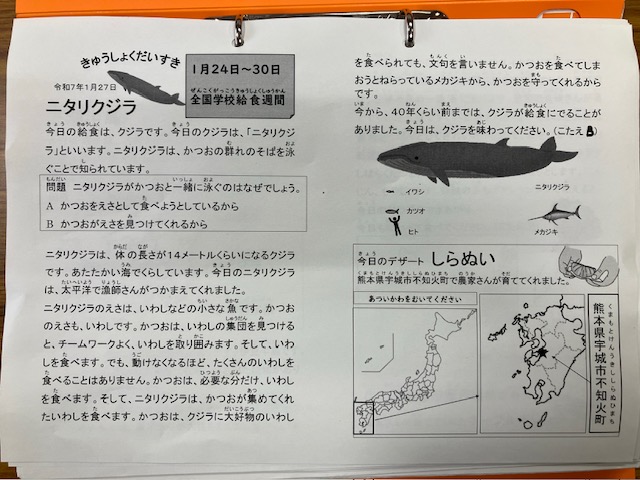 きゅうしょくだいすき
令和7年1月27日
ニタリクジラ
1月24日～30日
全国学校給食週間
今日の給食は、クジラです。今日のクジラは、「ニタリクジ
ラ」といいます。ニタリクジラは、かつおの群れのそばを泳
ぐことで知られています。
問題　ニタリクジラがかつおと一緒に泳ぐのはなぜでしょう。
A　かつおをえさとして食べようとしているから
B　かつおがえさを見つけてくれるから
ニタリクジラは、体の長さが14メートルくらいになるクジラ
です。あたたかい海でくらしています。今日のニタリクジラ
は、太平洋で漁師さんがつかまえてくれました。
ニタリクジラのえさは、いわしなどの小さな魚です。かつお
のえさも、いわしです。かつおは、いわしの集団を見つける
と、チームワークよく、いわしを取り囲みます。そして、いわ
しを食べます。でも、動けなくなるほど、たくさんのいわしを
食べることはありません。かつおは、必要な分だけ、いわし
を食べます。そして、ニタリクジラは、かつおが集めてくれ
たいわしを食べます。かつおは、クジラに大好物のいわし
を食べられても、文句を言いません。かつおを食べてしま
おうとねらっているメカジキから、かつおを守ってくれるから
です。
今から、40年くらい前までは、クジラが給食にでることが
ありました。今日は、クジラを味わってください。（こたえ B）
イワシ
カツオ
ヒト
ニタリクジラ
メカジキ
今日のデザート しらぬい
熊本県宇城市不知火町で農家さんが育ててくれました。
あついかわをむいてください
熊本県宇城市不知火町